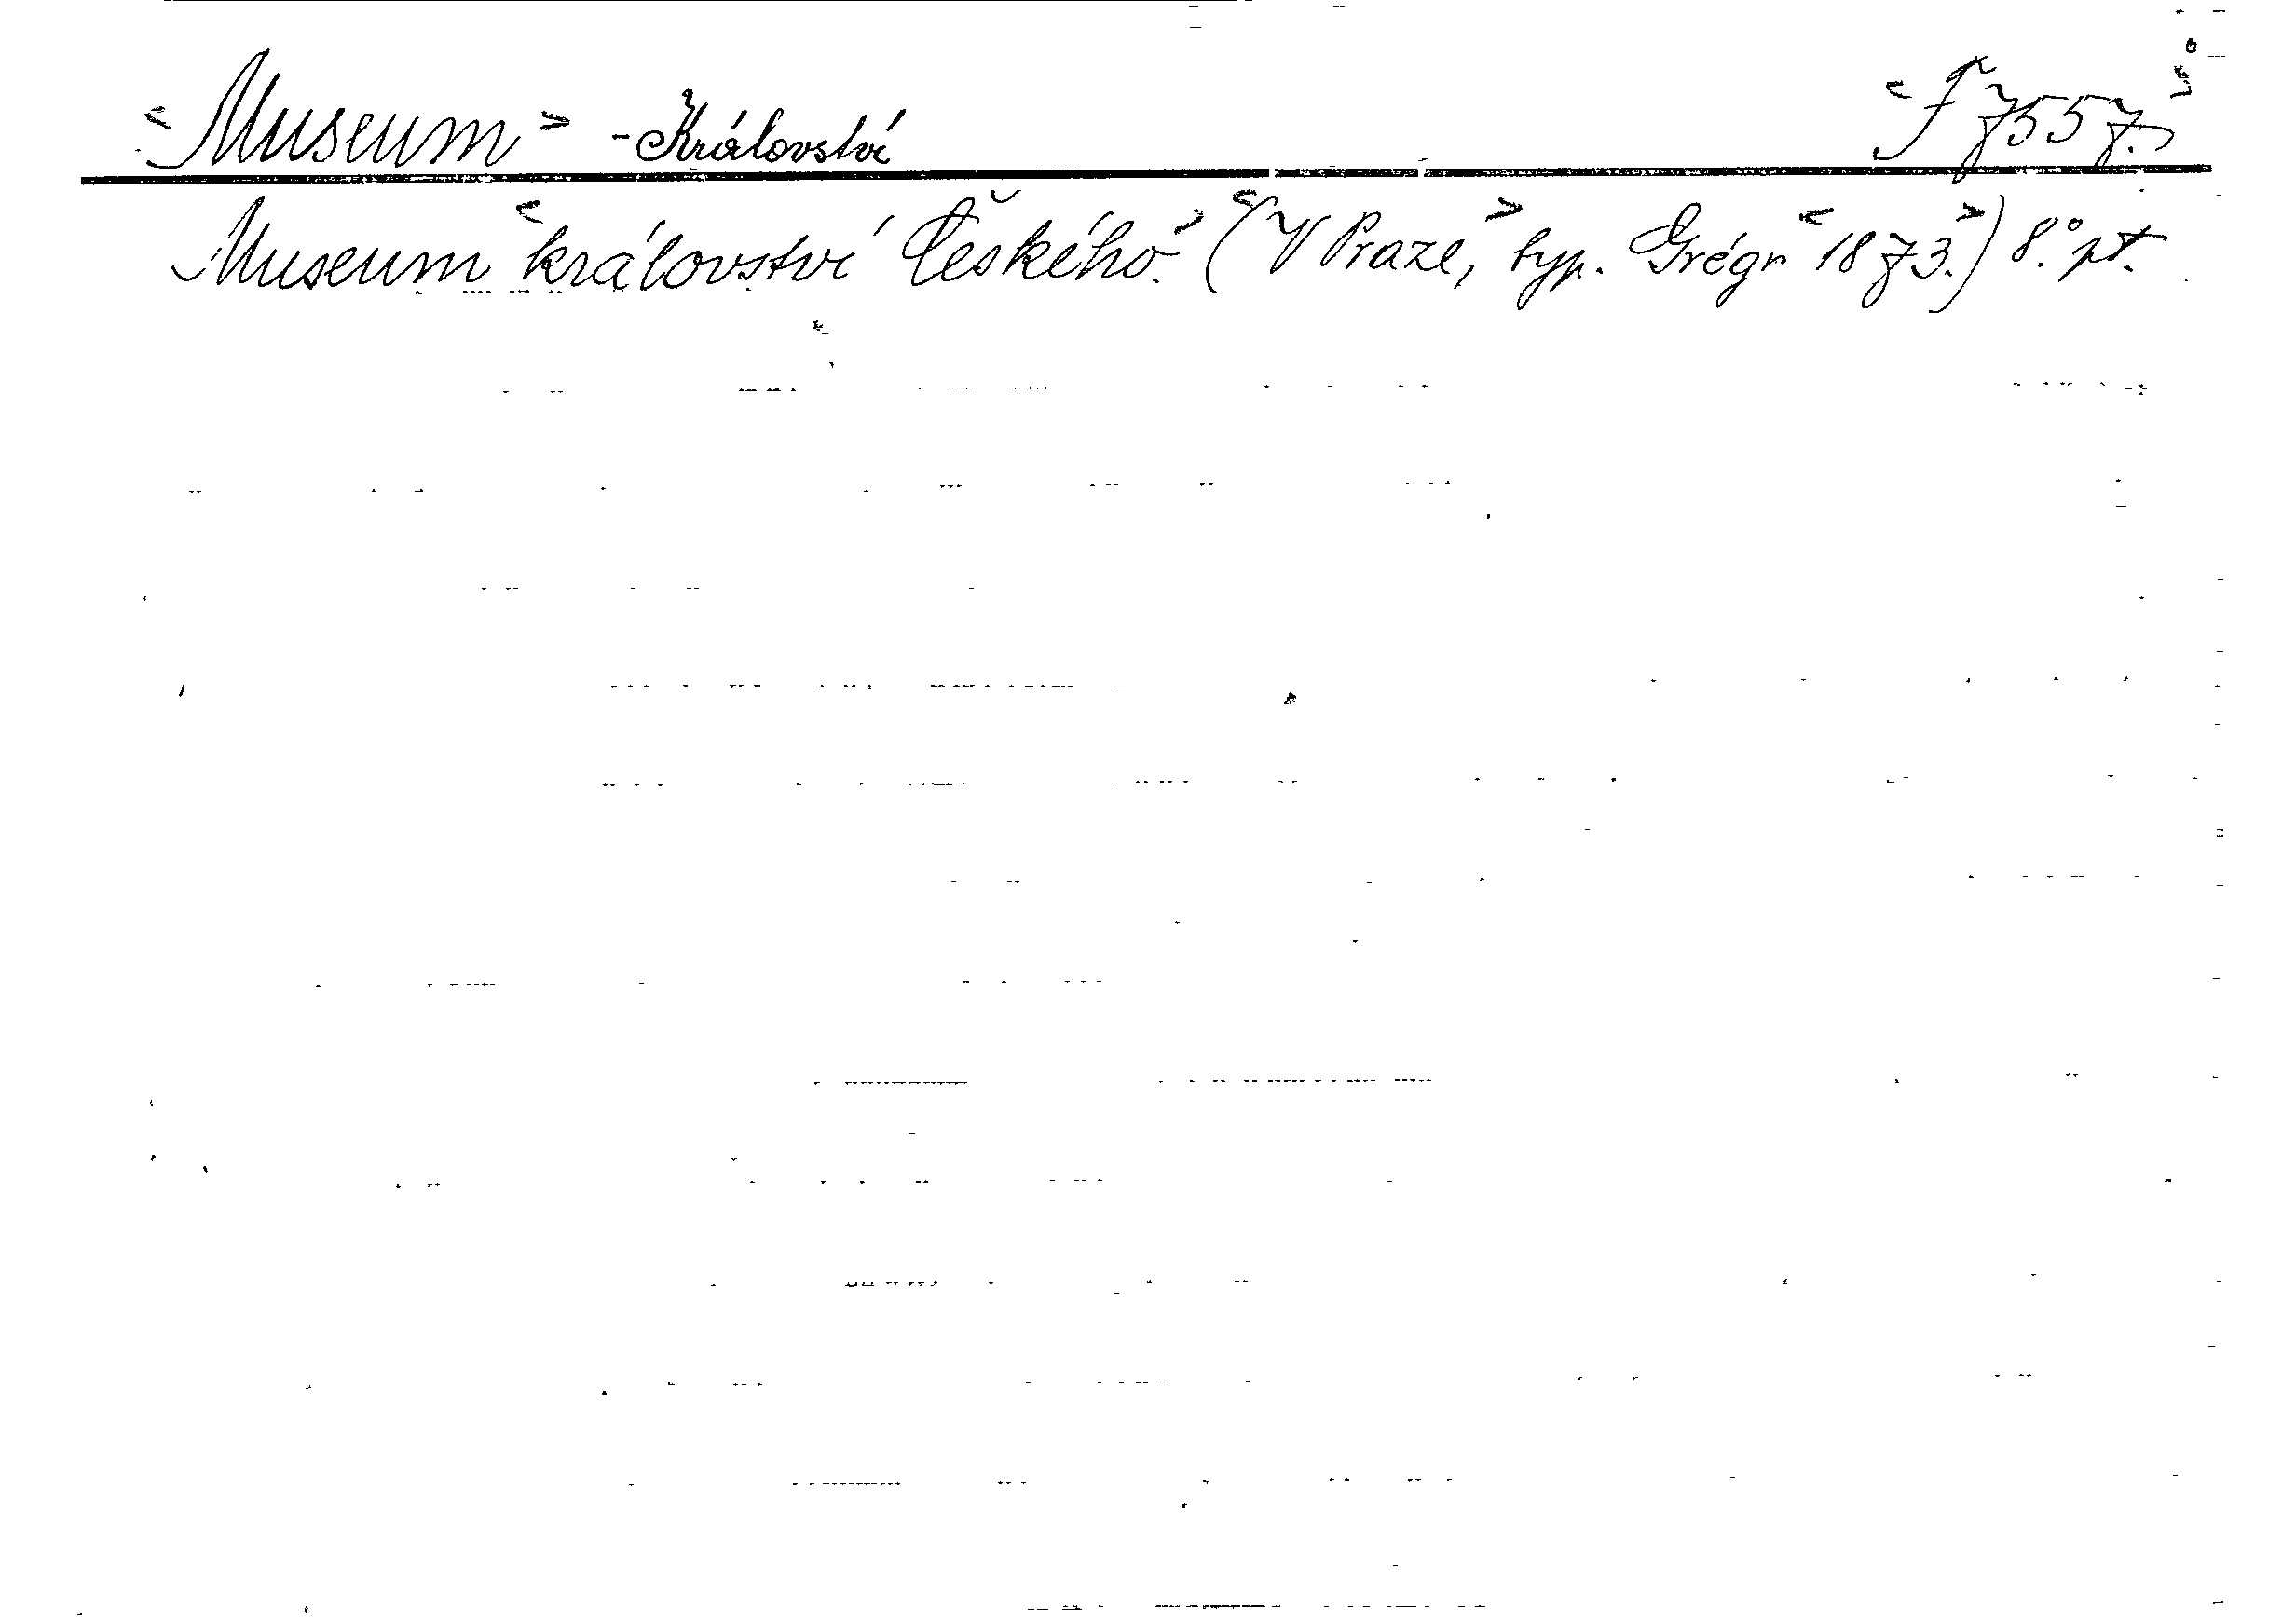 <Museum> - Království <J 7557.>
Museum <království Českého.> (<V Praze,> typ. Grégr <1873.>) 8.° pt.